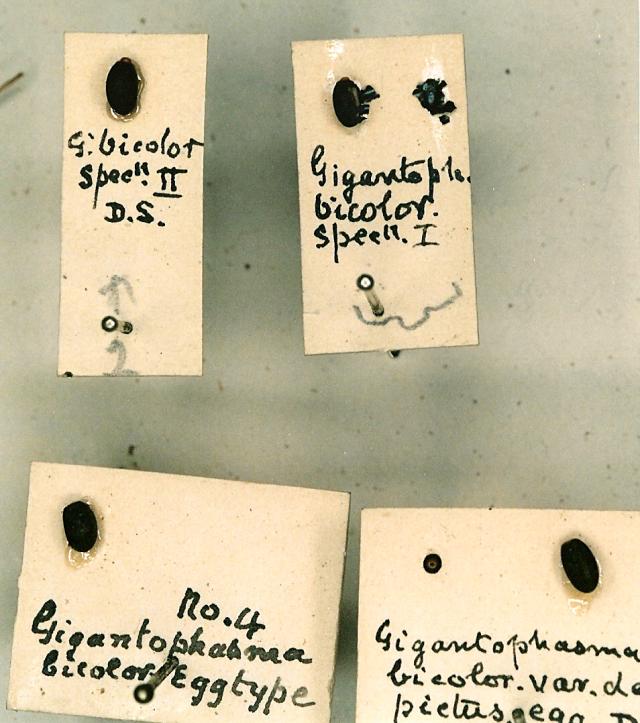 G. bicolor
Specn. II
D.S.
2
Gigantoph.
bicolor.
Specn. I
No. 4
Gigantophasma
bicolor Eggtype
Gigantophasma
bicolor. var. de
pictus. egg